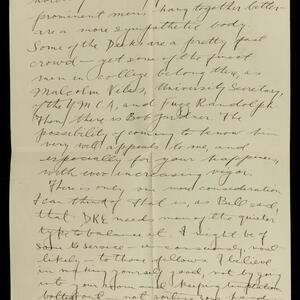 prominent men hang together better
are a more sympathetic body
Some of the Deeks are a pretty fast
crowd – yet some of the finest
men in college belong there, as
Malcolm, University Secretary,
of the YMCA, and Randolph
Then there is Bob. The
possibility of coming to know him
very well appeals to me, and
especially for your happiness,
with ever increasing vigor.
There is only one more consideration
I can think of that is, as Bill said,
that DKE needs men of the quieter
type to balance it. I might be of
some service – unconsciously, most
likely – to those fellows. I believe
in making yourself good, not by going
into your room and keeping temptation
bottled out, not